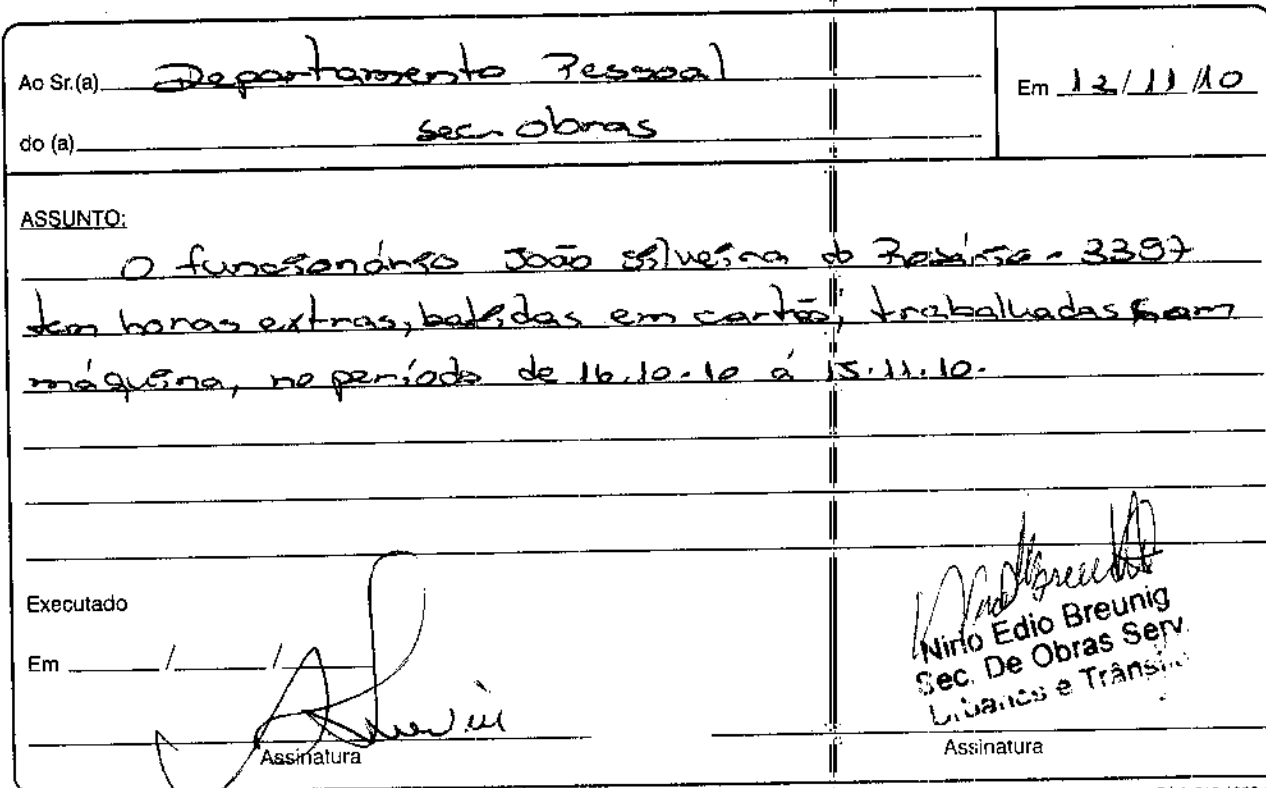 Ao Sr.(a) Departamento Pessoal
Em 12/11/10
do (a) Sec. Obras
ASSUNTO:
O funcionário João Silveira do Rosário - 3397
tem horas extras, batidas em cartão, trabalhadas com
máquina, no período de 16.10.10 á 15.11.10.
Executado
Em / /
Nirio Edio Breunig
Sec. De Obras Serv.
Urbanos e Trânsito
Assinatura
Assinatura